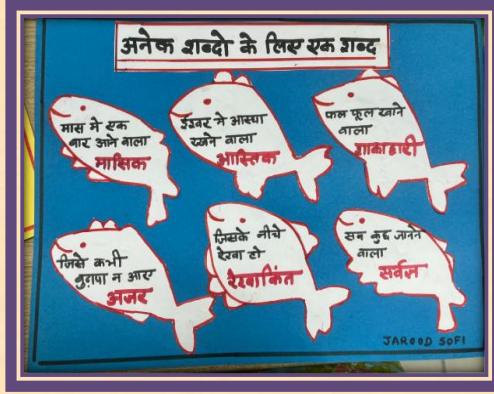 अनेक शब्दो के लिए एक शब्द
मास मे एक
बार आने वाला
मासिक
ईश्वर मे आस्था
रखने वाला
आस्तिक
फल फूल खाने
वाला
शाकाहारी
जिसे कभी
बुढ़ापा न आए
अजर
जिसके नीचे
रेखा हो
रेखांकित
सब कुछ जानने
वाला
सर्वज्ञ
JAROOD SOFI